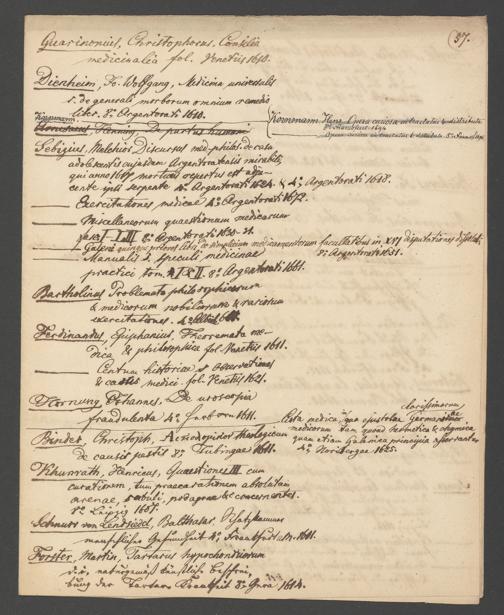 37.
Guarinonius, Christophorus, Consilia
medicinalia fol. Venetiis 1610.
Dienheim, K. Wolfgang, Medicina universalis
s. de generali morborum omnium remedio
liber. 8° Argentorati 1610.
Kornmann, Henr. Opera curiosa in tractatus distributa
8° Frankfurt 1694
Sebizius, Melchior, Discursus med.-philos. de casu
adolescentis cujusdam Argentoratensis mirabili,
qui anno 1617 mortuus repertus est adja-
cente ipsi serpente 4° Argentorati 1624. & 4° Argentorati 1618.
Exercitationes medicae 4° Argentorati 1672.
Miscellanearum quaestionum medicarum
8° Argentorati 1630-31.
Galeni quinque priores libri de simplicium medicamentorum facultatibus in XVI disputationes
8° Argentorati 1651.
Manualis s. speculi medicinae
practici tom. I & II. 8° Argentorati 1661.
Bartholinus Problemata philosophicorum
& medicorum nobiliorum & rariorum
exercitationes. 4°
Ferdinandus, Epiphanius, Theoremata me-
dica & philosophica fol. Venetiis 1611.
Centum historiae s observationes
& casus medici. fol. Venetiis 1621.
Hornung, Johannes. De uroscopia
fraudulenta 4° 1611.
Cista medica, qua epistolae clarissimorum Germaniae
medicorum tam quoad hermetica & chymica
quam etiam Galenica principia asservantur
4° Noribergae 1625.
Binder, Christoph, theologicum
de causis pestis 8° Tubingae 1611.
Khunrath, Henricus, Quaestiones III cum
curationem, tum praecavationem absolutam
arenae, sabuli, podagrae & concernentes.
8° Leipzig 1607.
Schnurr von Lendsiedel, Balthasar,
Gesundheit 4° Frankfurt 1611.
Forster, Martin, Tartarus hypochondriorum
d. i.
bung der Tartari Krankheit 8° Gera 1614.